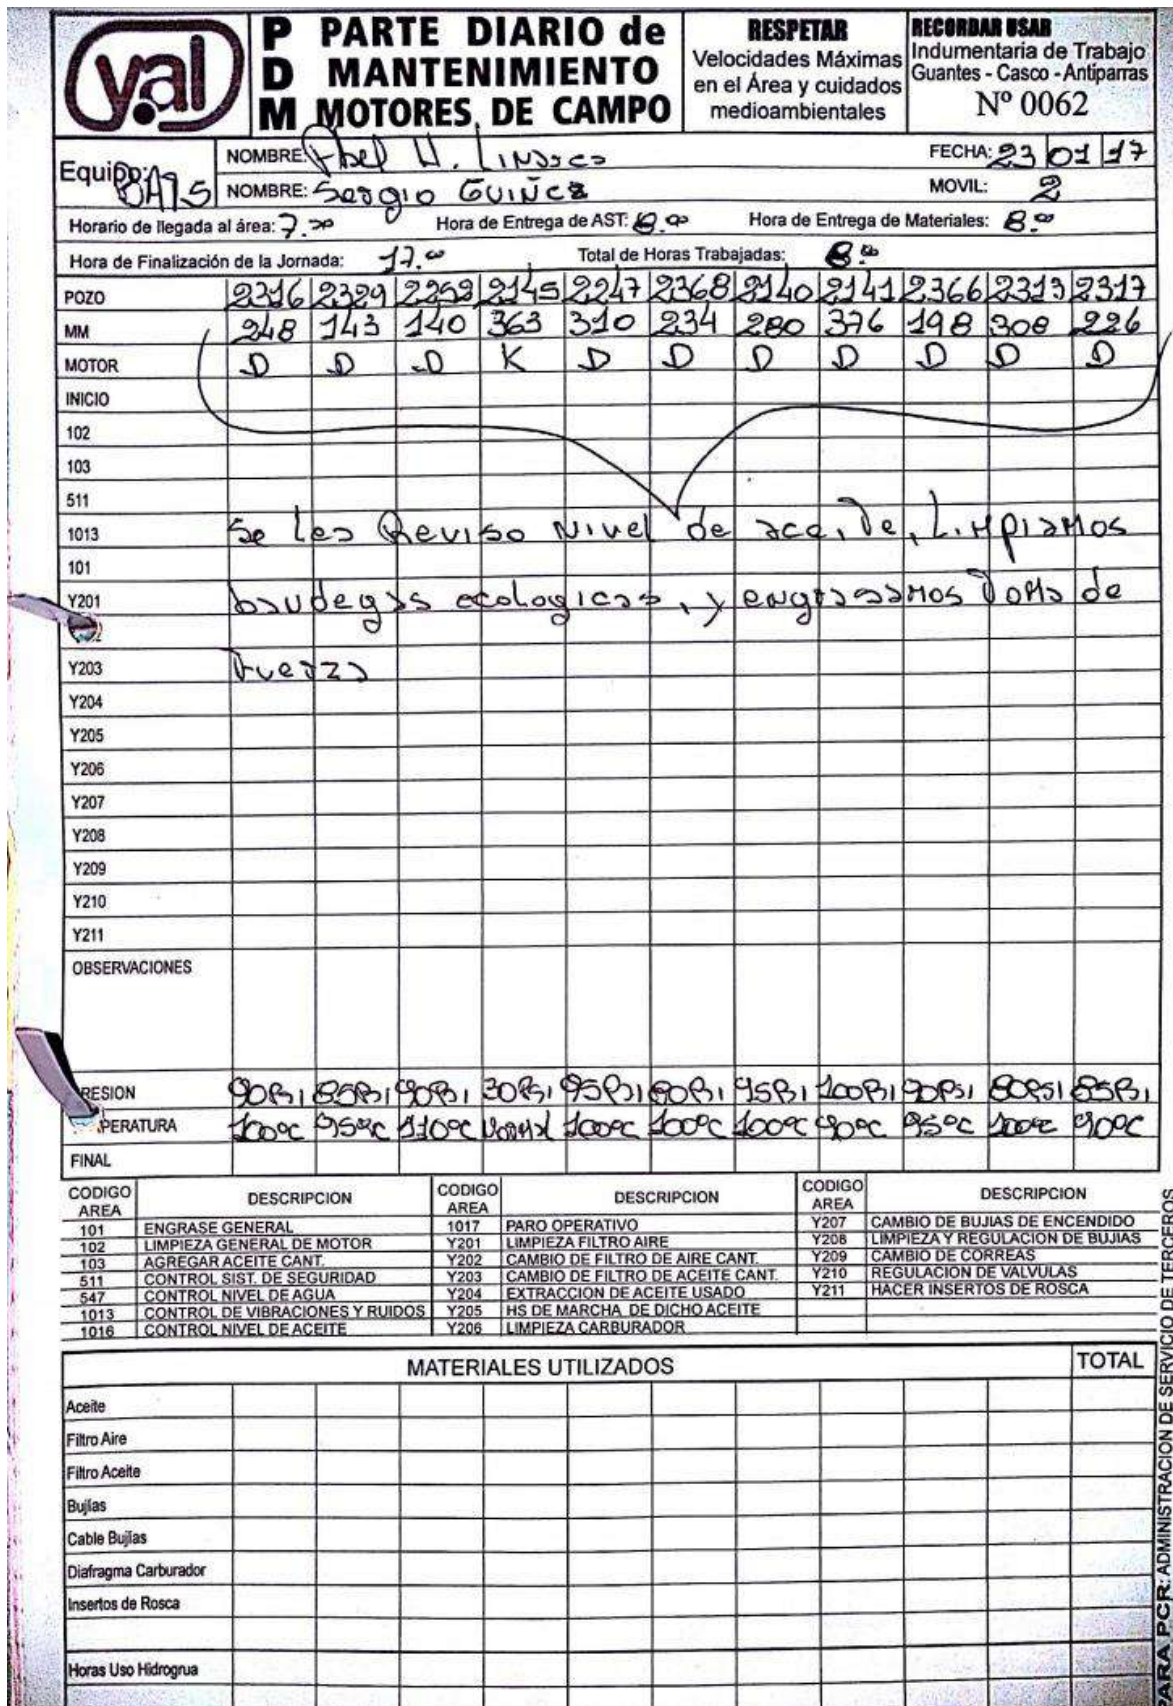 yal
PDM
PARTE DIARIO de
MANTENIMIENTO
MOTORES DE CAMPO
RESPETAR
Velocidades Máximas
en el Área y cuidados
medioambientales
RECORDAR USAR
Indumentaria de Trabajo
Guantes - Casco - Antiparras
Nº 0062
Equipo:
NOMBRE: Abel H.
FECHA: 23 01 17
NOMBRE: Sergio GUIÑEZ
MOVIL: 2
Horario de llegada al área: 7.30 Hora de Entrega de AST: 8.00 Hora de Entrega de Materiales: 8.00
Hora de Finalización de la Jornada: 17.00 Total de Horas Trabajadas: 8.00
POZO 2316 2329 2252 2145 2247 2368 2140 2141 2366 2313 2317
MM 248 143 140 363 310 234 280 376 198 308 226
MOTOR D D D K D D D D D D D
INICIO
102
103
511
1013 Se les Reviso Nivel de aceite, Limpiamos
101
Y201 baudegas ecologicas, y engrasamos Toma de
Y203 Fuerza
Y204
Y205
Y206
Y207
Y208
Y209
Y210
Y211
OBSERVACIONES
RESION 90PSI 85PSI 90PSI 30PSI 95PSI 80PSI 95PSI 100PSI 90PSI 80PSI 85PSI
PERATURA 100ºC 95ºC 110ºC Normal 100ºC 100ºC 100ºC 90ºC 95ºC 100ºC 90ºC
FINAL
CODIGO AREA DESCRIPCION CODIGO AREA DESCRIPCION CODIGO AREA DESCRIPCION
101 ENGRASE GENERAL 1017 PARO OPERATIVO Y207 CAMBIO DE BUJIAS DE ENCENDIDO
102 LIMPIEZA GENERAL DE MOTOR Y201 LIMPIEZA FILTRO AIRE Y208 LIMPIEZA Y REGULACION DE BUJIAS
103 AGREGAR ACEITE CANT. Y202 CAMBIO DE FILTRO DE AIRE CANT. Y209 CAMBIO DE CORREAS
511 CONTROL SIST. DE SEGURIDAD Y203 CAMBIO DE FILTRO DE ACEITE CANT. Y210 REGULACION DE VALVULAS
547 CONTROL NIVEL DE AGUA Y204 EXTRACCION DE ACEITE USADO Y211 HACER INSERTOS DE ROSCA
1013 CONTROL DE VIBRACIONES Y RUIDOS Y205 HS DE MARCHA DE DICHO ACEITE
1016 CONTROL NIVEL DE ACEITE Y206 LIMPIEZA CARBURADOR
MATERIALES UTILIZADOS TOTAL
Aceite
Filtro Aire
Filtro Aceite
Bujías
Cable Bujías
Diafragma Carburador
Insertos de Rosca
Horas Uso Hidrogrua
ARA PCR: ADMINISTRACION DE SERVICIO DE TERCEROS